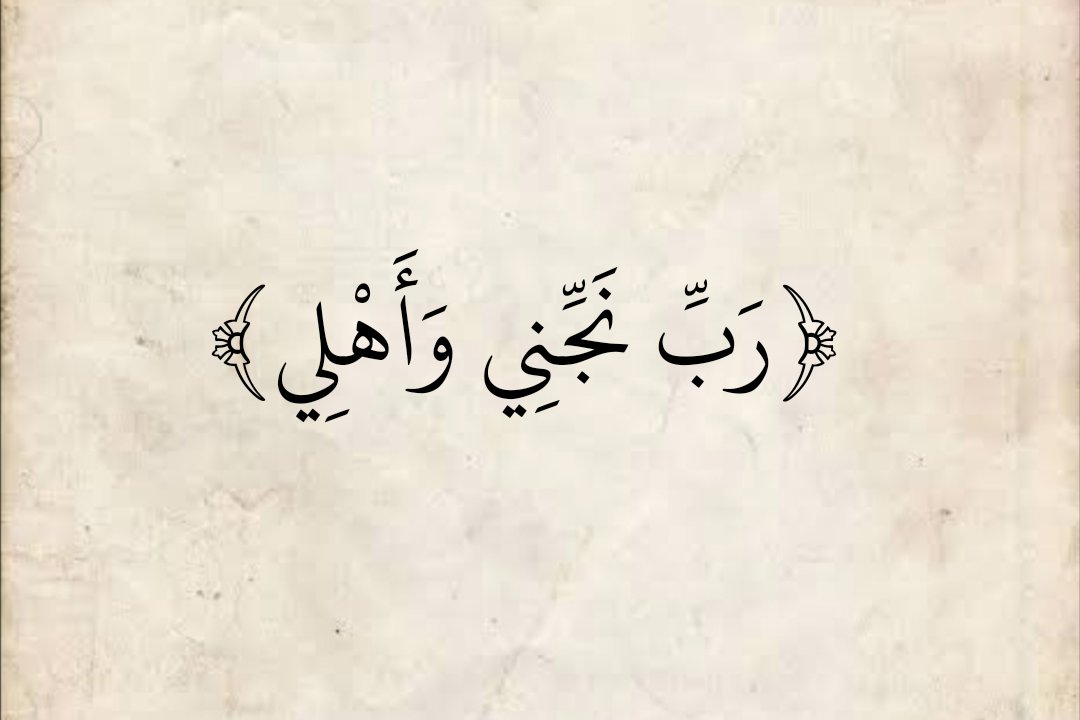 ﴿رَبِّ نَجِّنِي وَأَهْلِي﴾